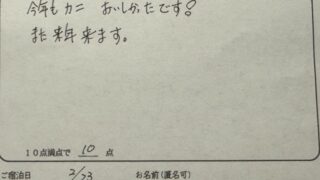 今年もカニ おいしかったです!
また来年来ます。
10点満点で 10 点
ご宿泊日 2/23 お名前(匿名可)